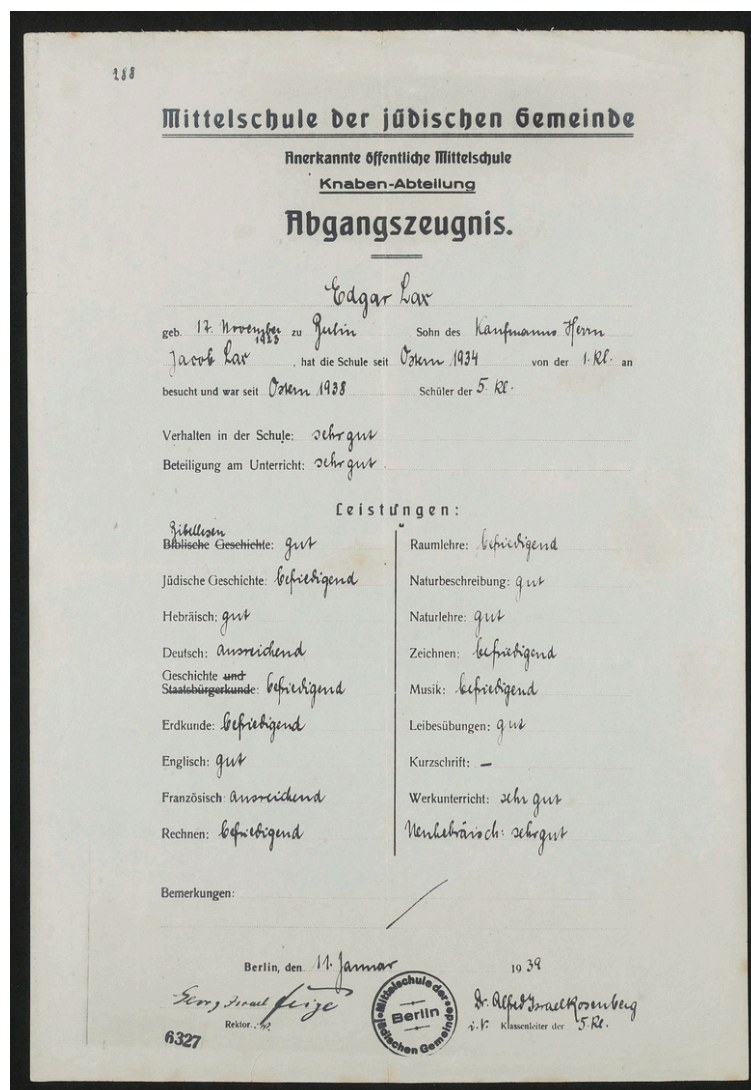 288
Mittelschule der jüdischen Gemeinde
Anerkannte öffentliche Mittelschule
Knaben-Abteilung
Abgangszeugnis.
Edgar Lax
geb. 17. November 1923 zu Berlin Sohn des Kaufmanns Herrn
Jacob Lax, hat die Schule seit Ostern 1934 von der 1. Kl. an
besucht und war seit Ostern 1938 Schüler der 5. Kl.
Verhalten in der Schule: sehr gut
Beteiligung am Unterricht: sehr gut.
Leistungen:
Bibellesen
Biblische Geschichte: gut
Jüdische Geschichte: befriedigend
Hebräisch: gut
Deutsch: ausreichend
Geschichte und
Staatsbürgerkunde: befriedigend
Erdkunde: befriedigend
Englisch: gut
Französisch: ausreichend
Rechnen: befriedigend
Raumlehre: befriedigend
Naturbeschreibung: gut
Naturlehre: gut
Zeichnen: befriedigend
Musik: befriedigend
Leibesübungen: gut
Kurzschrift: —
Werkunterricht: sehr gut
Neuhebräisch: sehr gut
Bemerkungen:
Berlin, den 11. Januar 1939
Georg Israel Feige
Rektor.
6327
Mittelschule der Jüdischen Gemeinde
Berlin
Dr. Alfred Israel Rosenberg
i. V. Klassenleiter der 5. Kl.